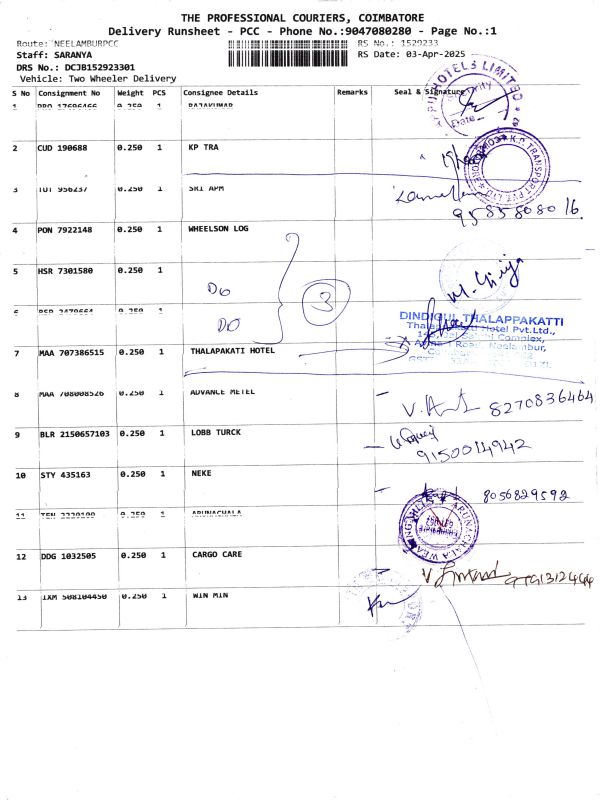 THE PROFESSIONAL COURIERS, COIMBATORE
Delivery Runsheet - PCC - Phone No.:9047080280 - Page No.:1
Route: NEELAMBURPCC RS No.: 1529233
Staff: SARANYA RS Date: 03-Apr-2025
DRS No.: DCJB152923301
Vehicle: Two Wheeler Delivery
S No Consignment No Weight PCS Consignee Details Remarks Seal & Signature
1 PRO 17696466 0.250 1 RAJAKUMAR
HOTELS LIMITED
Date
2 CUD 190688 0.250 1 KP TRA
K.P. TRANSPORT PVT LTD COIMBATORE
3 TUT 956237 0.250 1 SRI APM
9585808016.
4 PON 7922148 0.250 1 WHEELSON LOG
5 HSR 7301580 0.250 1
Do
3
6 0.250 1
DO
DINDIGUL THALAPPAKATTI
Hotel Pvt.Ltd.,
Complex,
Road, Neelambur,
7 MAA 707386515 1 THALAPAKATI HOTEL
8 MAA 708008526 0.250 1 ADVANCE METEL
8270836464
9 BLR 2150657103 0.250 1 LOBB TURCK
9150014942
10 STY 435163 0.250 1 NEKE
8056829592
11 0.250 1 ARUNACHALA
ARUNACHALA
12 DDG 1032505 0.250 1 CARGO CARE
13 IXM 508104450 0.250 1 WIN MIN